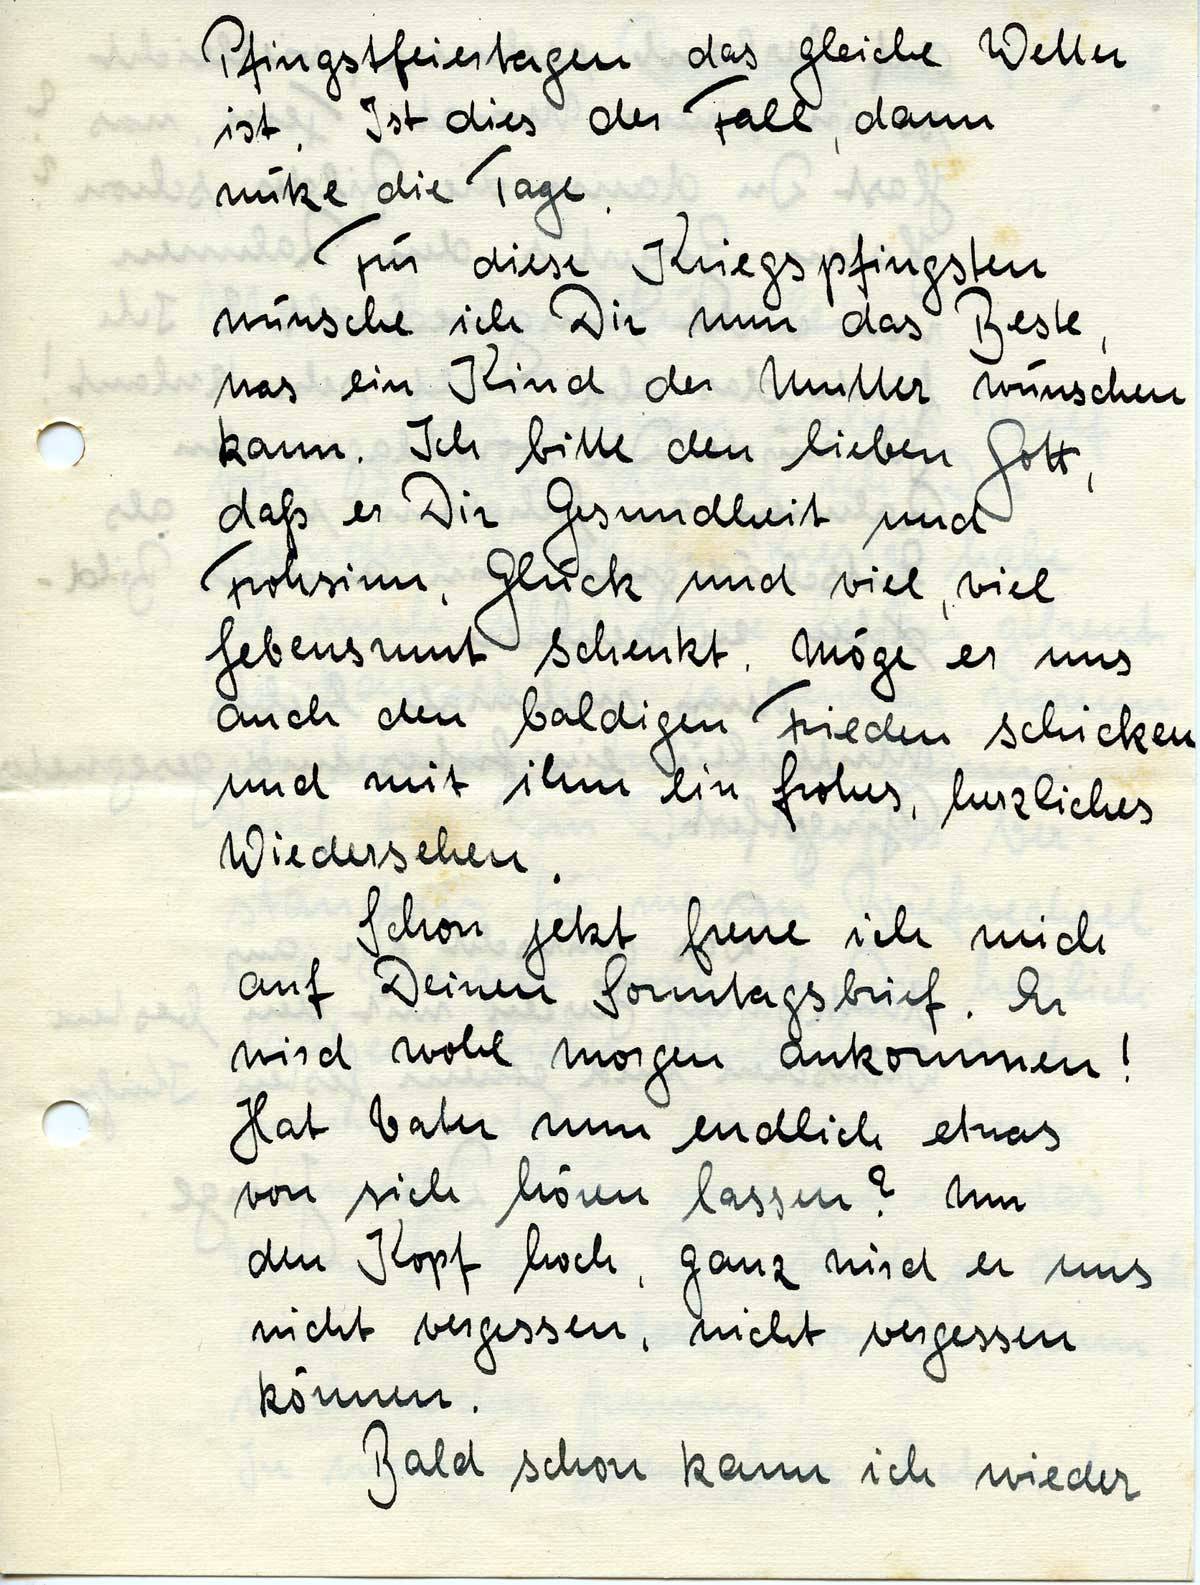 Pfingstfeiertagen das gleiche Wetter
ist. Ist dies der Fall, dann
nütze die Tage.
Für diese Kriegspfingsten
wünsche ich Dir nun das Beste,
was ein Kind der Mutter wünschen
kann. Ich bitte den lieben Gott,
daß er Dir Gesundheit und
Frohsinn, Glück und viel, viel
Lebensmut schenkt. Möge er uns
auch den baldigen Frieden schicken
und mit ihm ein frohes, herzliches
Wiedersehen.
Schon jetzt freue ich mich
auf Deinen Sonntagsbrief. Er
wird wohl morgen ankommen!
Hat Vater nun endlich etwas
von sich hören lassen? Nur
den Kopf hoch, ganz wird er uns
nicht vergessen, nicht vergessen
können.
Bald schon kann ich wieder